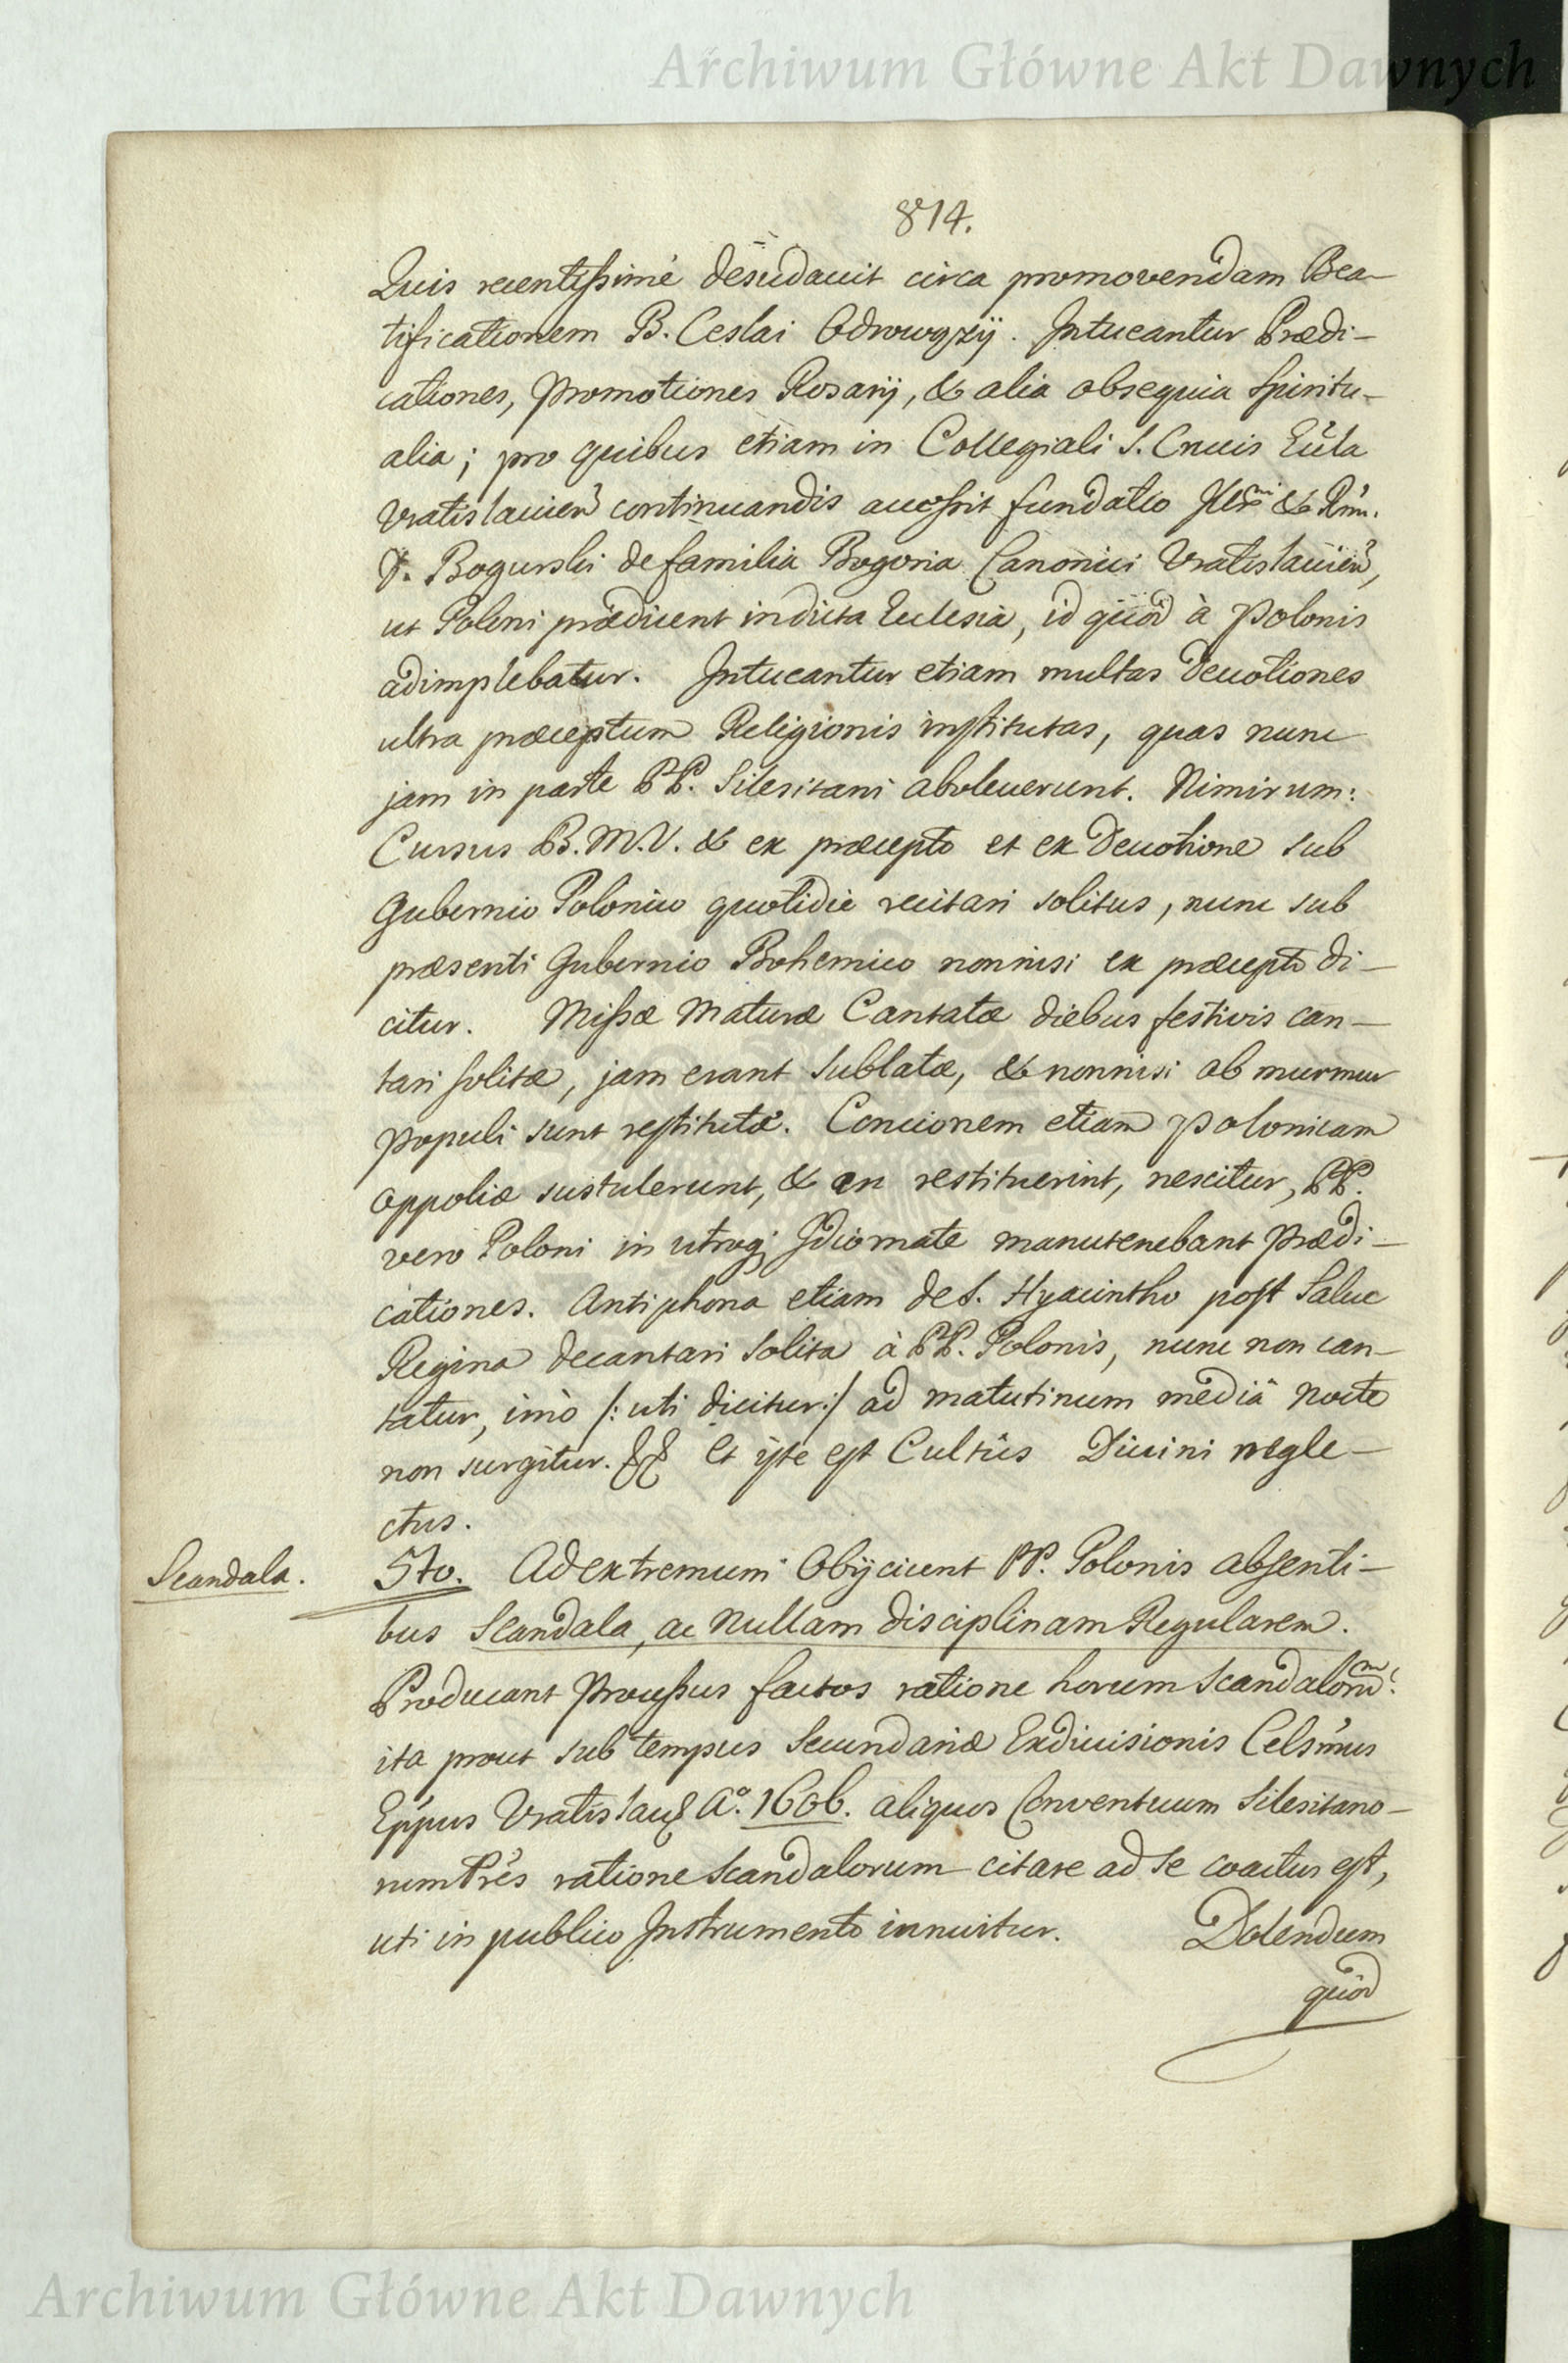 Archiwum Główne Akt Dawnych
814.
Quis recentissimè desudauit circa promovendam Bea-
tificationem B. Ceslai Odrowązij. Intueantur Prædi-
cationes, promotiones Rosarij, & alia obsequia Spiritu-
alia; pro quibus etiam in Collegiali S. Crucis Eccla
Vratislauien continuandis accessit fundatio & Rmi.
D. Bogurski de familia Bogoria Canonici Vratislauien,
ut Poloni prædicent in dicta Ecclesia, id quod à Polonis
adimplebatur. Intueantur etiam multas Deuotiones
ultra præceptum Religionis institutas, quas nunc
jam in parte PP. Silesitani aboleuerunt. Nimirum:
Cursus B.M.V. & ex præcepto et ex Deuotione sub
Gubernio Polonico quotidie recitari solitus, nunc sub
præsenti Gubernio Bohemico nonnisi ex præcepto di-
citur. Missæ Maturæ Cantatæ diebus festivis can-
tari solitæ, jam erant sublatæ, & nonnisi ob murmur
populi sunt restitutæ. Concionem etiam Polonicam
Oppoliæ sustulerunt, & an restituerint, nescitur, PP.
vero Poloni in utroq; Idiomate manutenebant Prædi-
cationes. Antiphona etiam de S. Hyacintho post Salue
Regina decantari solita à PP. Polonis, nunc non can-
tatur, imò /: uti dicitur:/ ad matutinum mediâ nocte
non surgitur. Et iste est Cultûs Diuini negle-
ctus.
Scandala. 5to. Ad extremum Obijciunt PP. Polonis absenti-
bus Scandala, ac nullam disciplinam Regularem.
Producant Processus factos ratione horum Scandalorum
ita prout sub tempus Secundariæ Exdiuisionis Celsmus
Eppus Vratislau A°. 1606. aliquos Conventuum Silesitano-
rum Pres ratione Scandalorum citare ad se coactus est,
uti in publico Instrumento innuitur. Dolendum
quod
Archiwum Główne Akt Dawnych